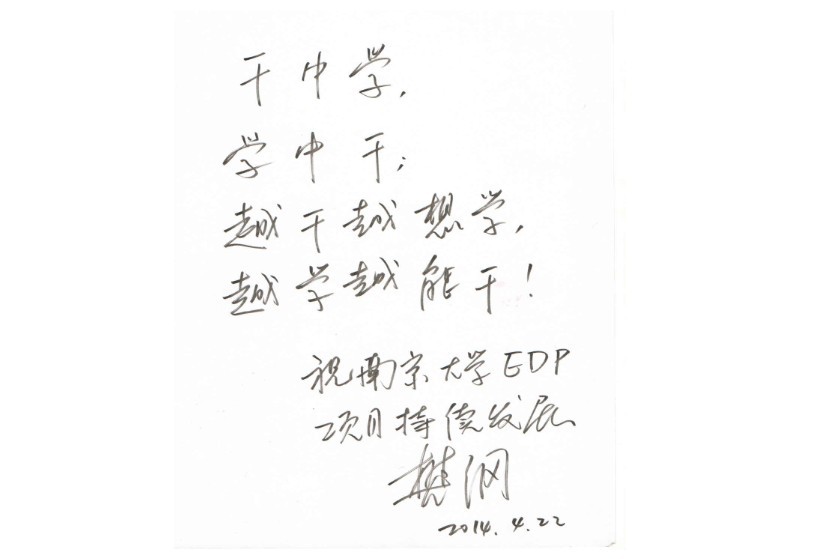 干中学,
学中干;
越干越想学,
越学越能干!
祝南京大学EDP
项目持续发展
樊纲
2014.4.22